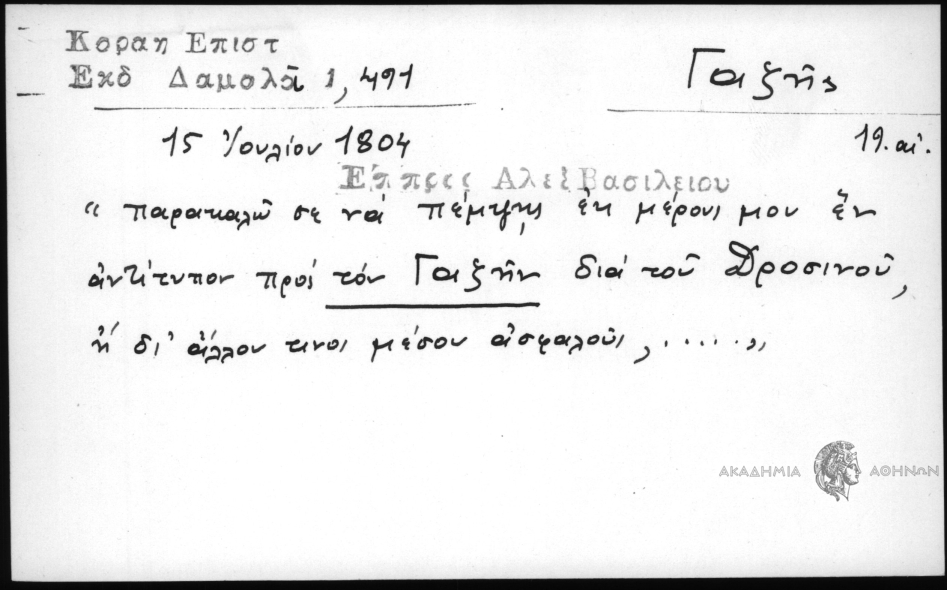 Κοραη Επιστ
Εκδ Δαμολᾶ 1, 491
Γαζῆς
15 Ἰουλίου 1804
19. αἰ.
Επ πρσς Αλεξ Βασιλειου
“ παρακαλῶ σε νά πέμψῃς ἐκ μέρους μου ἕν
ἀντίτυπον πρός τόν Γαζῆν διά τοῦ Δροσινοῦ,
ἤ δι' ἄλλου τινος μέσου ἀσφαλοῦς, ..... „
ΑΚΑΔΗΜΙΑ ΑΘΗΝΩΝ